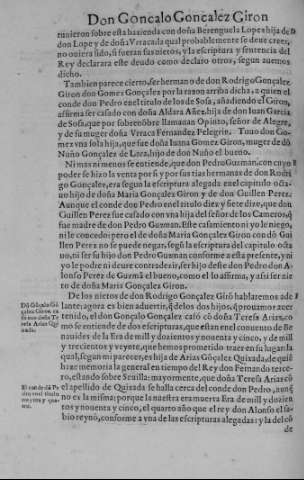 Don Gonçalo Gonçalez Giron
tuuieron sobre esta hazienda con doña Berenguela Lopez hija de D
don Lope y de doña Vrraca, la qual probablemente se deue creer,
no ouiera sido, si fueran sus nietos, y la escriptura y sentencia del
Rey declarara este deudo como declaro otros, segun auemos
dicho.
Tambien parece cierto, ser hermano de don Rodrigo Gonçalez
Giron don Gomez Gonçalez por la razon arriba dicha, a quien el
conde don Pedro en el titulo de los de Sosa, añadiendo el Giron,
affirma ser casado con doña Aldara Añez, hija de don Iuan Garcia
de Sosa, que por sobrenõbre llamauan Opinto, señor de Alegre,
y de su muger doña Vrraca Fernandez Pelegrin. Tuuo don Go-
mez vna sola hija, que fue doña Iuana Gomez Giron, muger de dõ
Nuño Gonçalez de Lara, hijo de don Nuño el bueno.
Ni mas ni menos se entiende, que don Pedro Guzman, con cuyo
poder se hizo la venta por si y por sus tias hermanas de don Rodri
go Gonçalez, era segun la escriptura alegada en el capitulo octa-
uo hijo de doña Maria Gonçalez Giron y de don Guillen Perez.
Aunque el conde don Pedro en el titulo diez y siete dize, que don
Guillen Perez fue casado con vna hija del señor de los Cameros, q̃
fue madre de don Pedro Guzman. Este casamiento ni yo le niego,
ni le concedo: pero el de doña Maria Gonçalez Giron con dõ Gui
llen Perez no se puede negar, segũ la escriptura del capitulo octa
uo, ni ser su hijo don Pedro Guzman conforme a esta presente, y ni
yo le podre ni deuo contradezir, ser hijo deste don Pedro don A-
lonso Perez de Guzmã el bueno, como el lo affirma, y assi ser nie
to de doña Maria Gonçalez Giron.
De los nietos de don Rodrigo Gonçalez Girõ hablaremos ade
lante: agora es bien aduertir, q̃ de los dos hijos, q̃ prouamos auer
tenido, el don Gonçalo Gonçalez casò cõ doña Teresa Arias, co
mo se entiende de dos escripturas, que estan en el conuento de Be
nauides de la Era de mill y dozientos y nouenta y cinco, y de mill
y trezientos y veynte, que hemos prometido traer en su lugar: la
qual, segun mi parecer, es hija de Arias Gõçalez Quixada, de quiẽ
haze memoria la general en tiempo del Rey don Fernando terce-
ro, estando sobre Seuilla: mayormente, que doña Teresa Arias cõ
el apellido de Quixada se halla cerca del conde don Pedro, aunq̃
no es la misma: porque la nuestra era muerta Era de mill y dozien
tos y nouenta y cinco, el quarto año que el rey don Alonso el sa-
bio reynò, conforme a vna de las escripturas alegadas: y la del cõ
de